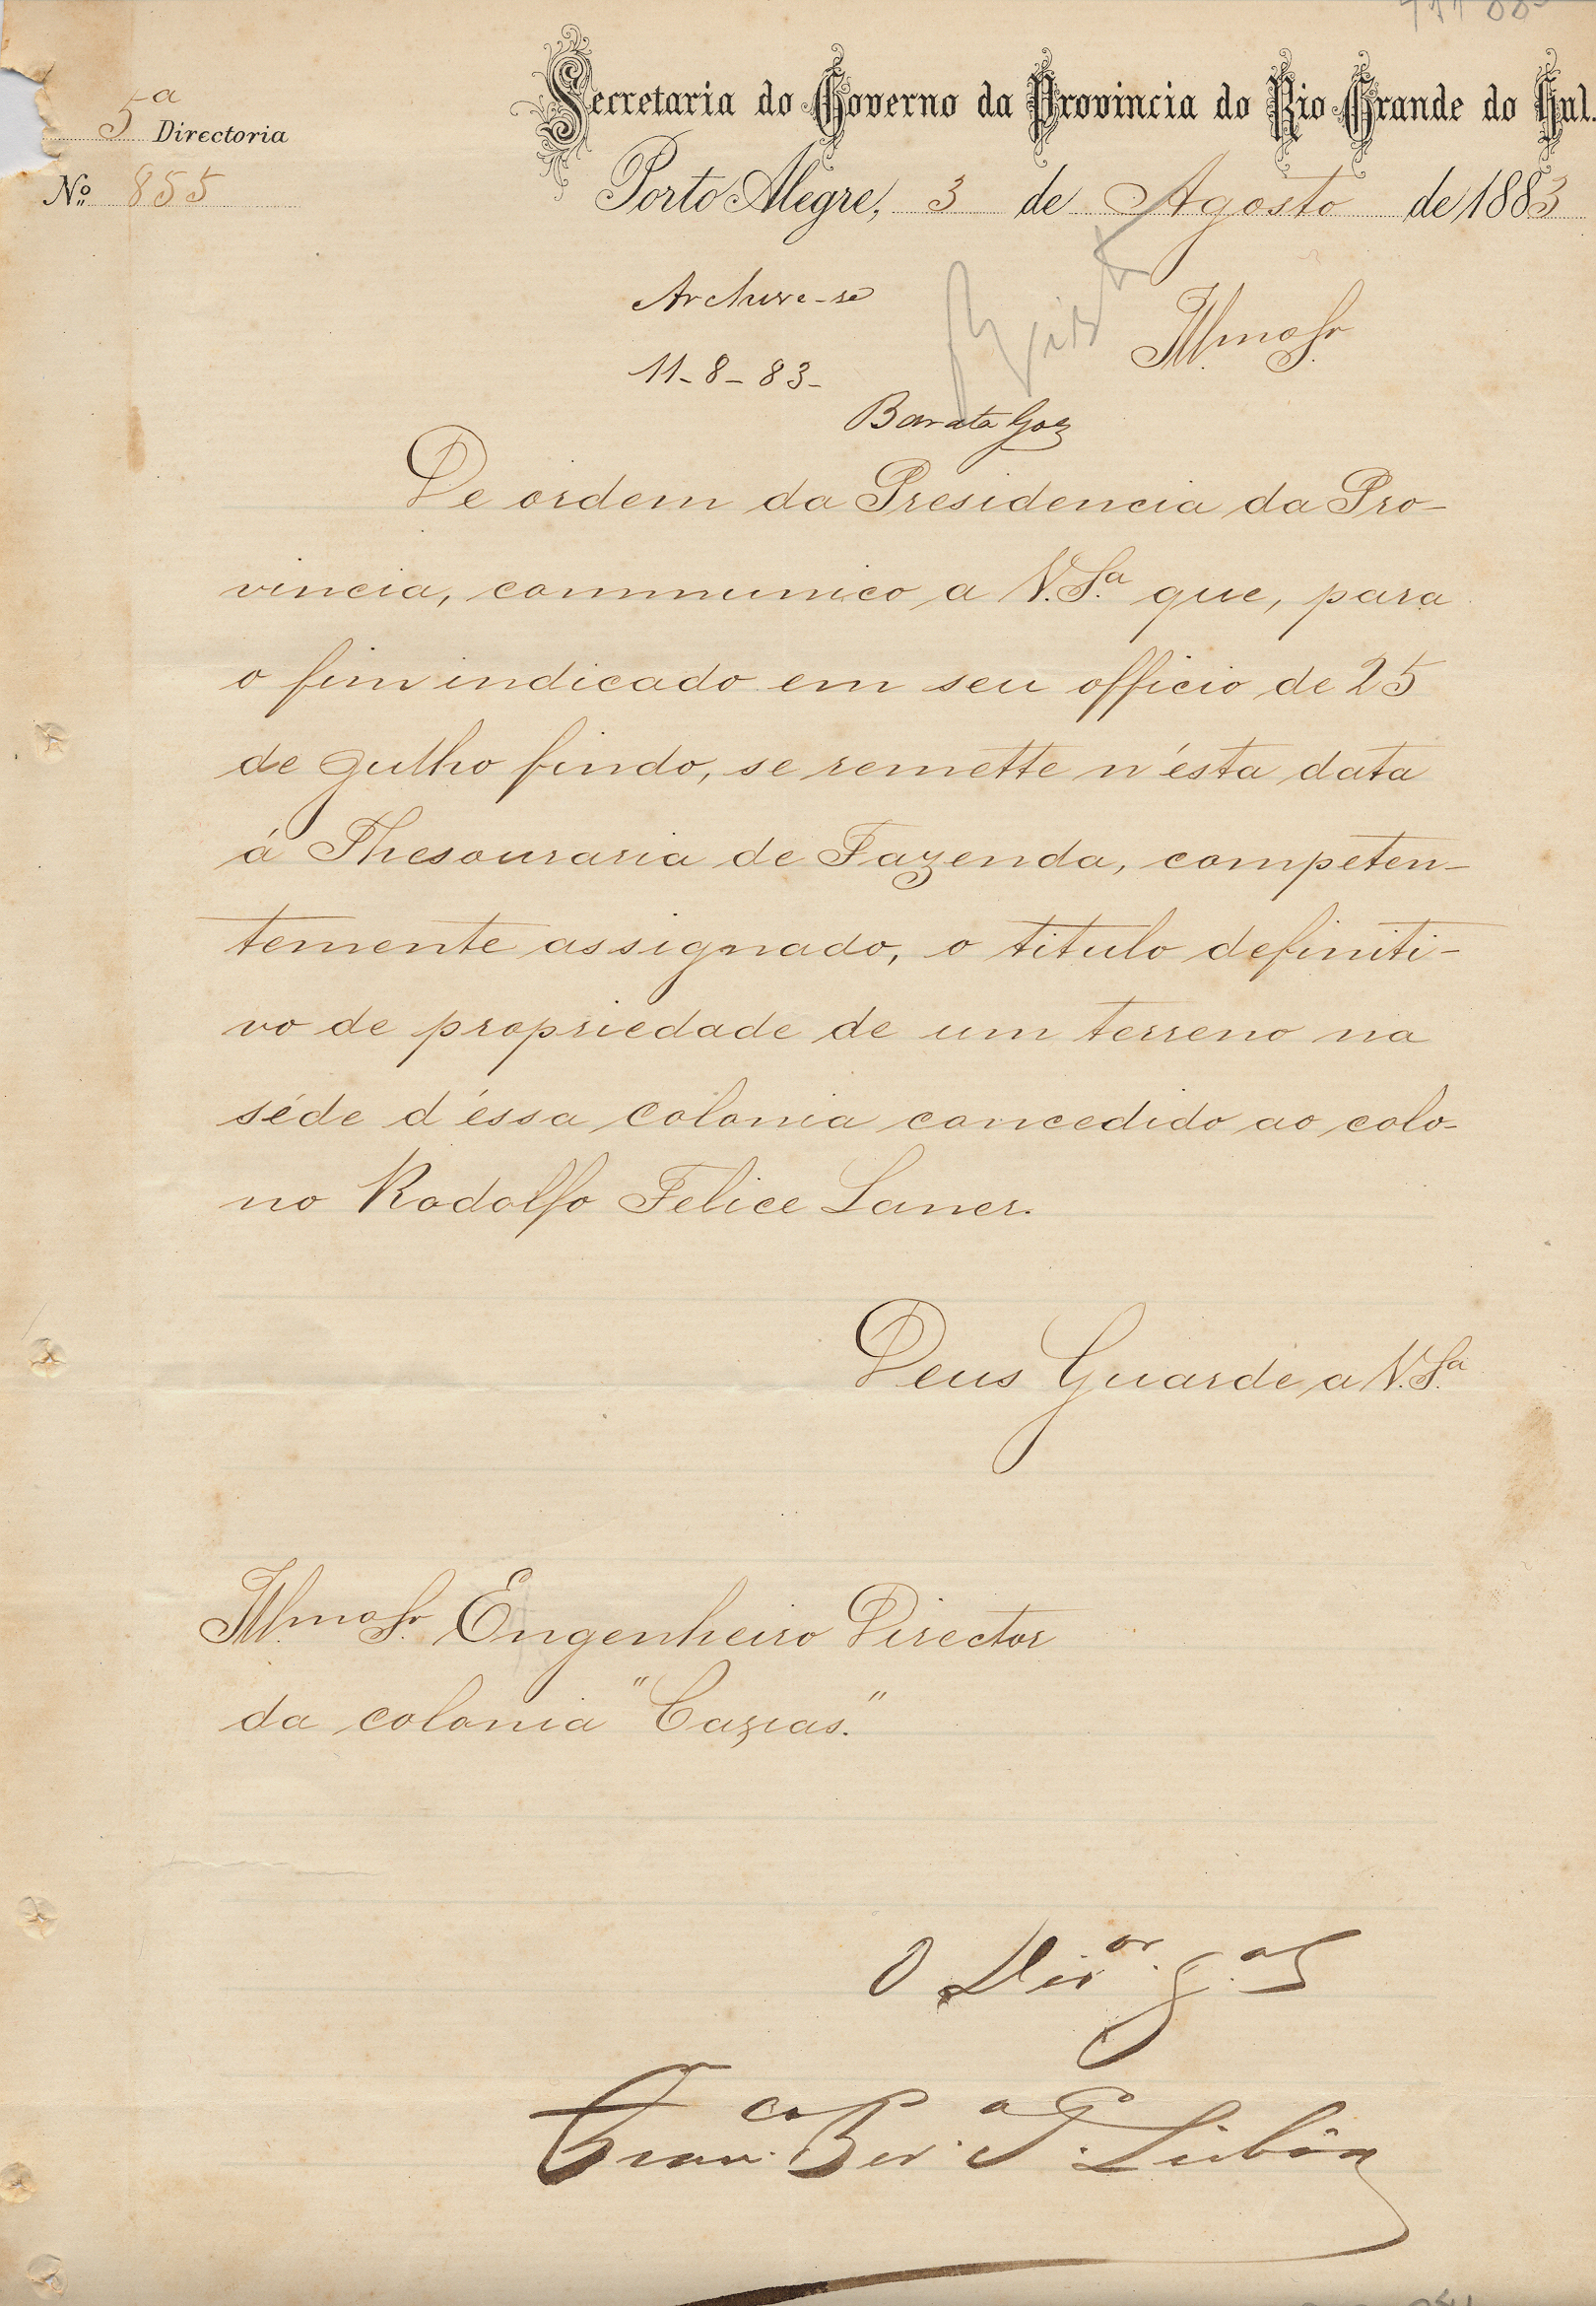 Secretaria do Governo da Provincia do Rio Grande do Sul.
5ª Directoria
Nº 855
Porto Alegre, 3 de Agosto de 1883
Archive-se
11-8-83-
Barata Goz
Illmo Sr.
De ordem da Presidencia da Pro-
vincia, communico a V.Sª que, para
o fim indicado em seu officio de 25
de Julho findo, se remette n'ésta data
á Thesouraria de Fazenda, competen-
temente assignado, o titulo definiti-
vo de propriedade de um terreno na
séde d'éssa colonia concedido ao colo-
no Rodolfo Felice Laner.
Deus Guarde a V.Sª
Illmo Sr. Engenheiro Director
da colonia "Caxias."
O Dir.or g.al